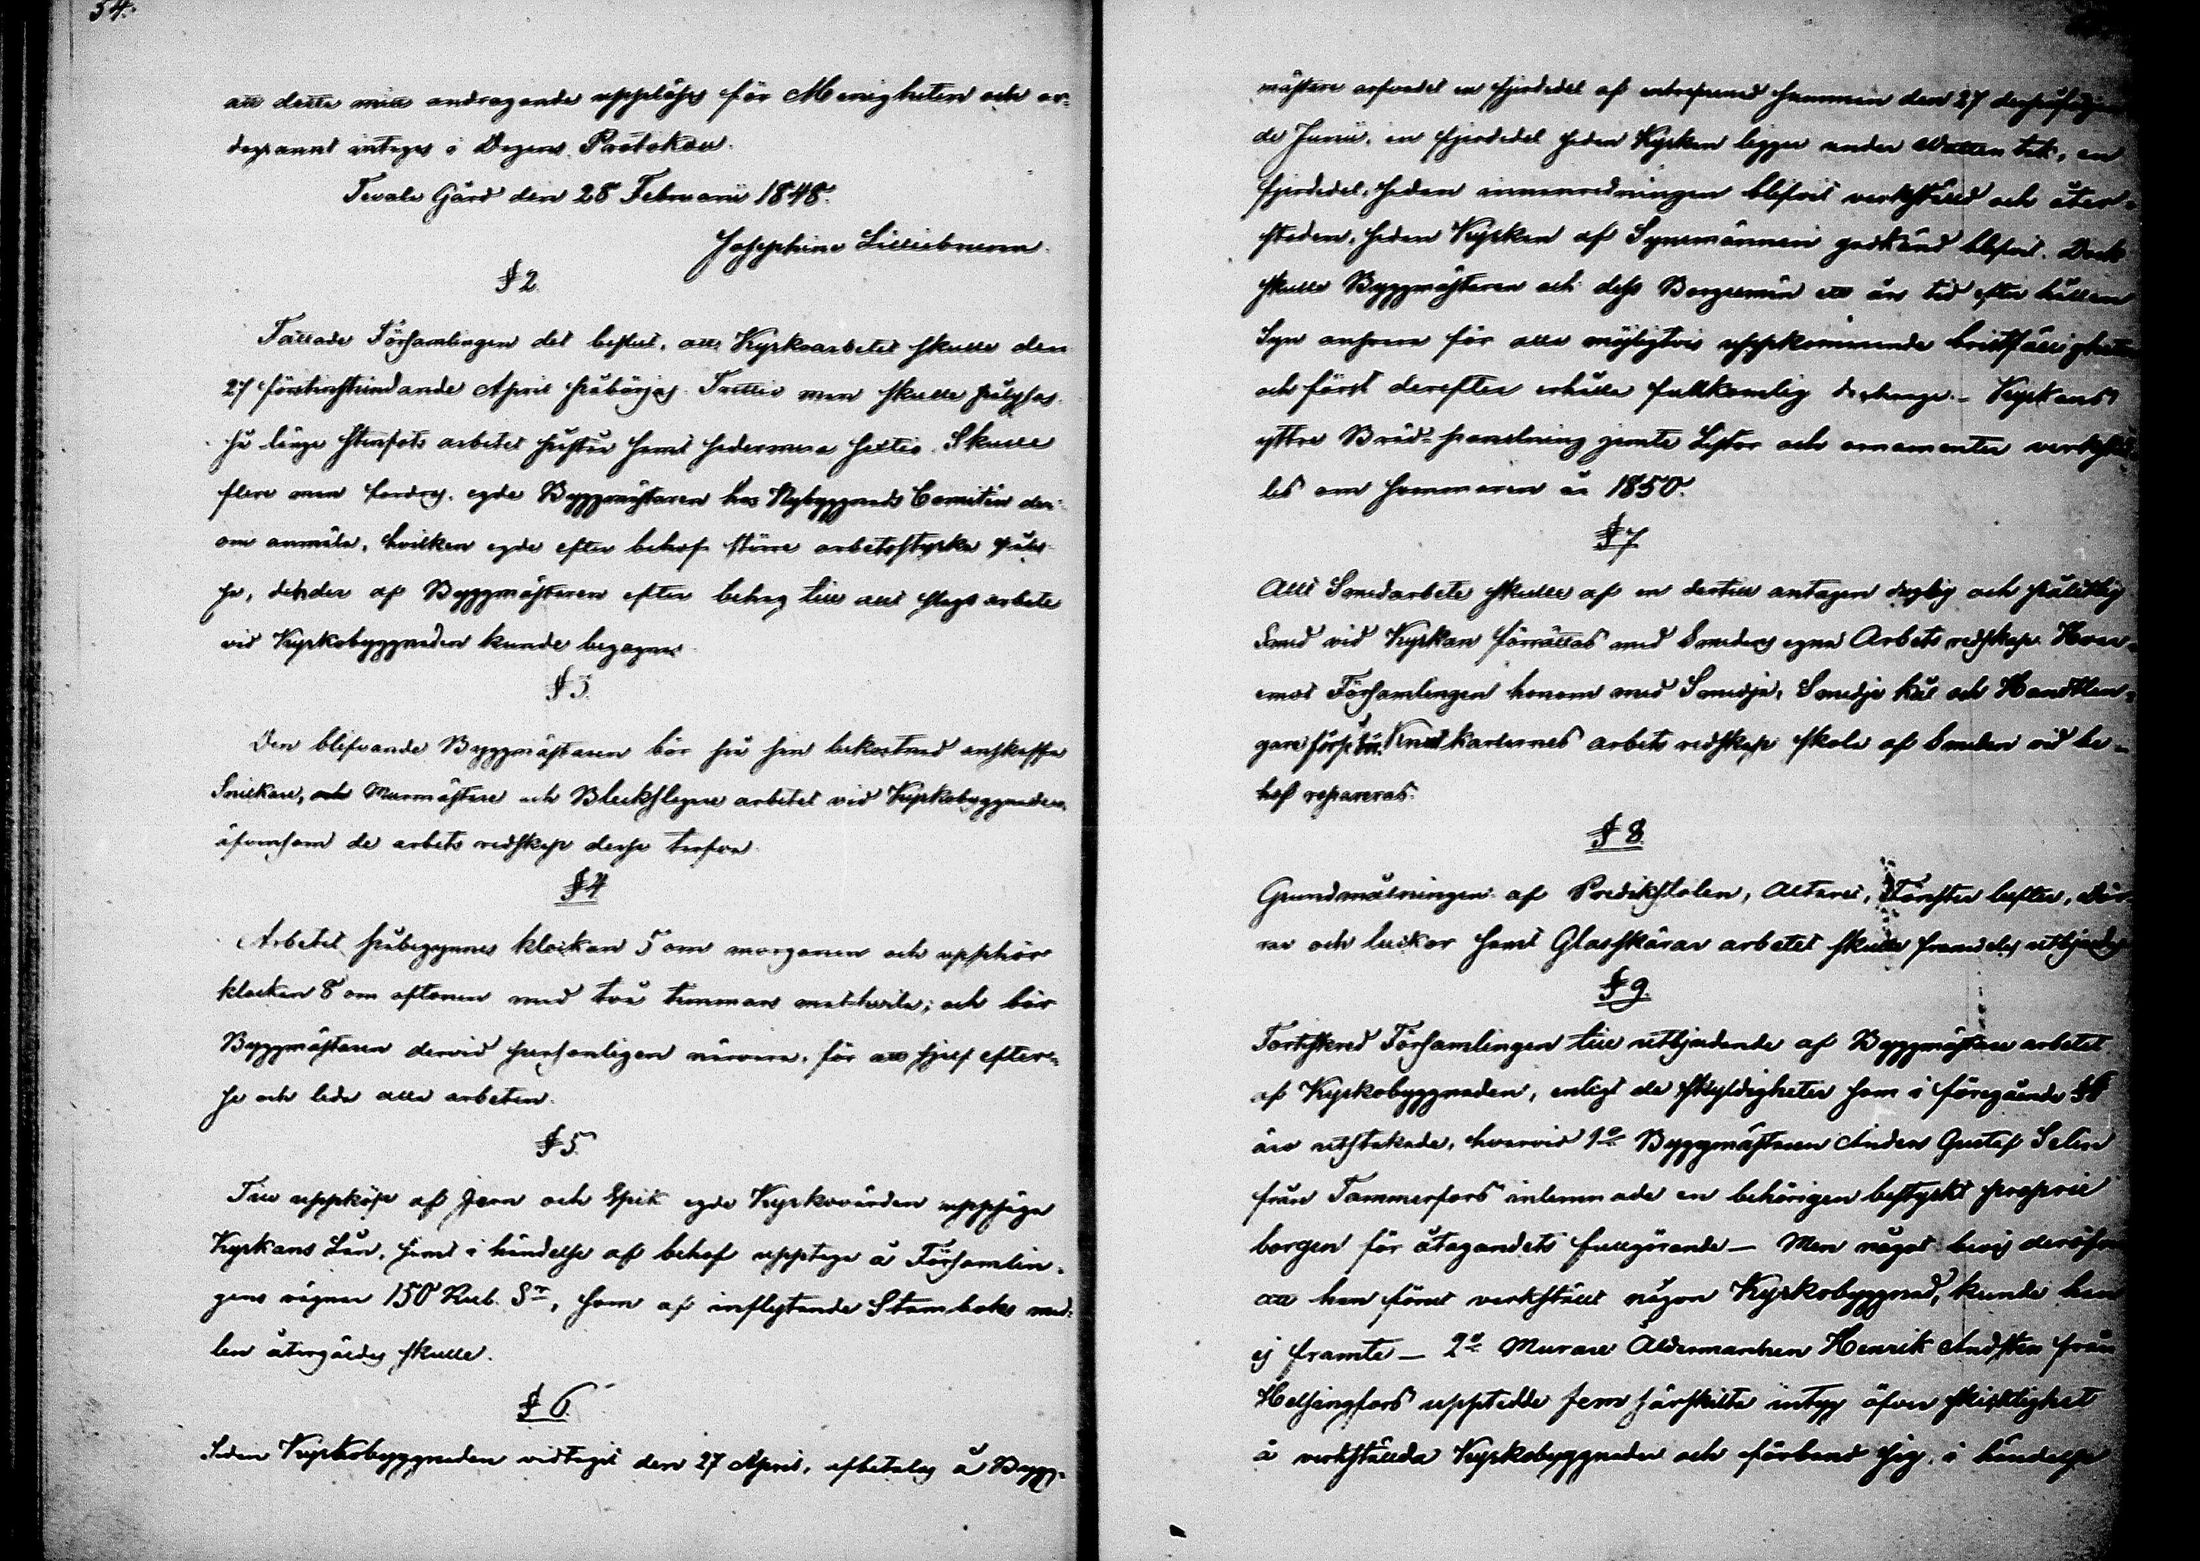 54.
att detta mitt andragande uppläses för Menigheten och or-
dagrannt intages i Dagens Protokoll.
Tevala Gård den 28 Februarii 1848.
Josephine Lilliebrunn.
§ 2.
Fattade Församlingen det beslut, att Kyrkoarbetet skulle den
27 förstinstundande April påbörjas. Trettio man skulle pålysas
så länge stenfots arbetet påstår samt sedermera sextio. Skulle
flere man fordras, egde Byggmästaren hos Nybyggnads Comitén der-
om anmäla, hvilken egde efter behof större arbetsstyrka påly-
sa, dender af Byggmästaren efter behag till allt slags arbete
vid Kyrkobyggnaden kunde begagnas.
§ 3.
Den blifvande Byggmästaren bör på sin bekostnad anskaffa
Snickare, och Murmästare och Bleckslagare arbetet vid Kyrkobyggnaden,
äfvensom de arbets redskap dessa tarfva.
§ 4
Arbetet påbegynnes klockan 5 om morgonen och upphör
klockan 8 om aftonen med två timmars mathvila; och bör
Byggmästaren dervid personligen närvara, för att sjelf efter-
se och leda alla arbeten.
§ 5.
Till uppköp af Jern och Spik egde Kyrkovärden uppsäga
Kyrkans Lån, samt i händelse af behof upptaga å Församlin-
gens vägnar 150 Rub. Sr, som af inflytande Stamboks med-
len återgäldas skulle.
§ 6.
Sedan Kyrkobyggnaden vidtagit den 27 April, afbetalas å Bygg-
mästare arfvodet en fjerdedel af entreprenad summan den 27 derpåföljan
de Junii, en fjerdedel sedan Kyrkan ligger under Vatten tak, en
fjerdedel, sedan innanredningen blifvit verkställd och åter-
stoden, sedan Kyrkan af Synemännen godkänd blifvit. Dock
skulle Byggmästaren och dess Borgesmän ett års tid efter hållen
Syn ansvara för alla möjligtvis uppkommande bristfälligheter
och först derefter erhålla fullkomlig decharge. – Kyrkans
yttre Bräd-panelning jemte Listor och ornamenter verkstäl
les om sommaren år 1850.
§ 7
Allt Smedarbete skulle af en dertill antagen duglig och pålitlig
Smed vid Kyrkan förrättas med Smedens egna Arbets redskap. Hvar-
emot Församlingen honom med Smedja, Smedje kål och Handtlan-
gare försåge. Timmerkarlarnes arbets redskap skola af Smeden vid be-
hof repareras.
§ 8.
Grundmålningen af Predikstolen, Altaret, Fönster lufter, Dör
rar och luckor samt Glasskärar arbetet skulle framdeles utbjudas
§ 9.
Fortskred Församlingen till utbjudande af Byggmästare arbetet
af Kyrkobyggnaden, enligt de skyldigheter som i föregående §§
äro utstakade, hvarvid 1o Byggmästaren Anders Gustaf Selin
från Tammerfors inlemnade en behörigen bestyrkt proprie
borgen för åtagandets fullgörande – Men något bevis deröfver
att han förut verkställt någon Kyrkobyggnad, kunde han
ej framte – 2o Murare Åldermannen Henrik Andstén från
Helsingfors upptedde fem särskilta intyg öfver skicklighet
å verkställda Kyrkobyggnader och förband sig, i händelse